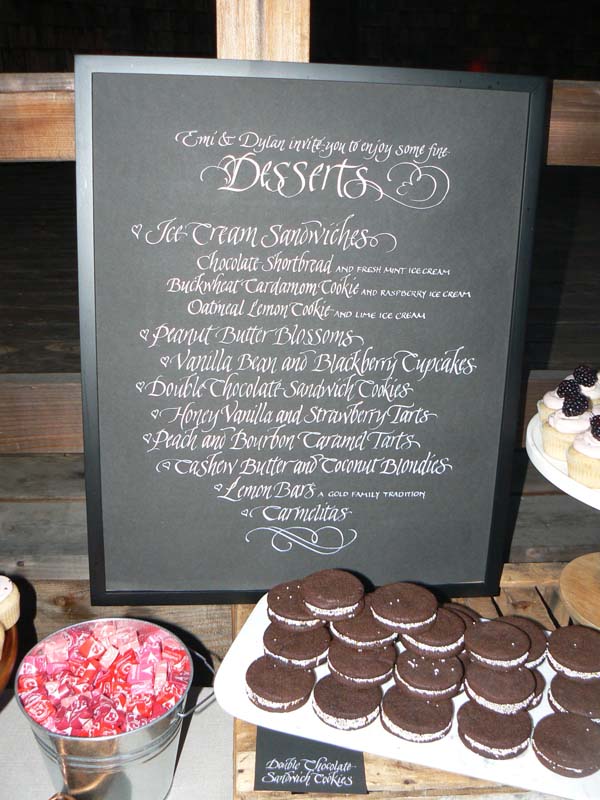 Emi & Dylan invite you to enjoy some fine
Desserts
Ice Cream Sandwiches
Chocolate Shortbread AND FRESH MINT ICE CREAM
Buckwheat Cardamom Cookie AND RASPBERRY ICE CREAM
Oatmeal Lemon Cookie AND LIME ICE CREAM
Peanut Butter Blossoms
Vanilla Bean and Blackberry Cupcakes
Double Chocolate Sandwich Cookies
Honey Vanilla and Strawberry Tarts
Peach and Bourbon Caramel Tarts
Cashew Butter and Coconut Blondies
Lemon Bars A GOLD FAMILY TRADITION
Carmelitas
Double Chocolate
Sandwich Cookies